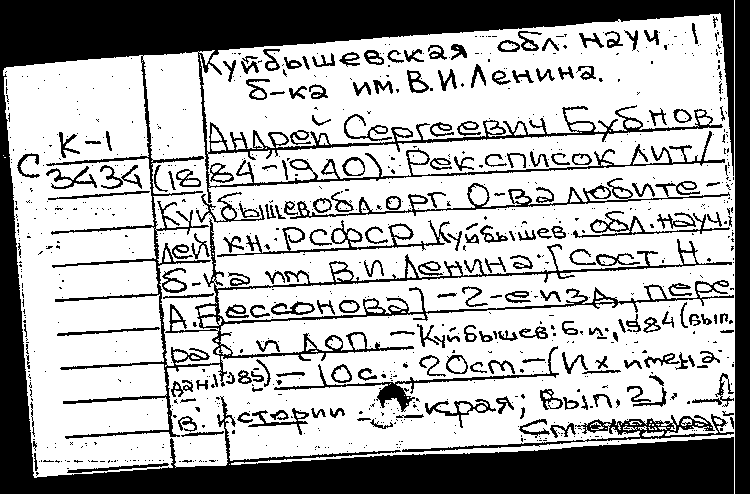 Куйбышевская обл. науч.
б-ка им. В.И.Ленина.
К-1 Андрей Сергеевич Бубнов
С 3434 (1884-1940): Рек.список лит./
Куйбышев.обл.орг. О-ва любите-
лей кн. РСФСР, Куйбышев. обл. науч.
б-ка им В.И. Ленина; [Сост. Н.
А.Бессонова] - 2-е изд., пере
раб. и доп. - Куйбышев: Б.и., 1984 (вып.
дан.1985). - 10с.; 20см. - (Их имена
в истории края; Вып. 2).
См